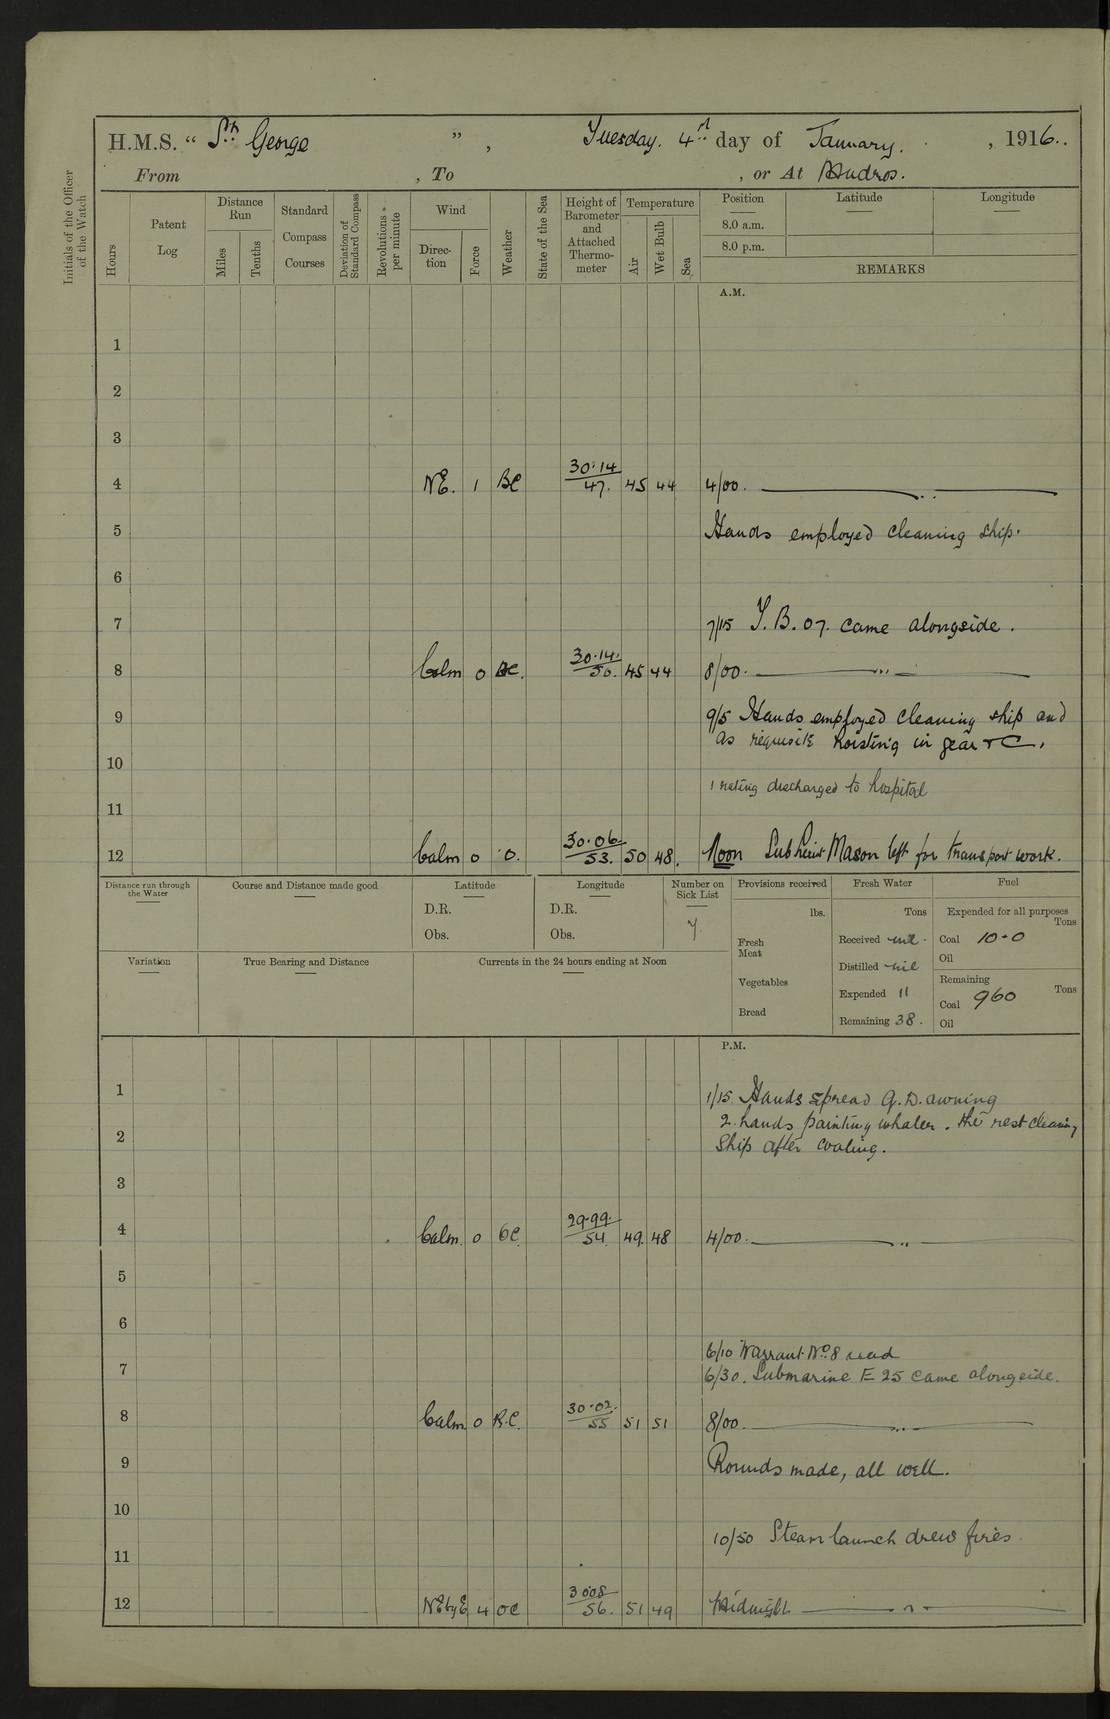 H.M.S. “ St. George ” , Tuesday. 4th day of January. , 1916..
From , To , or At Mudros.
Initials of the Officer of the Watch
Hours
Patent Log
Distance Run
Miles
Tenths
Standard Compass Courses
Deviation of Standard Compass
Revolutions per minute
Wind
Direction
Force
Weather
State of the Sea
Height of Barometer and Attached Thermometer
Temperature
Air
Wet Bulb
Sea
Position Latitude Longitude
8.0 a.m.
8.0 p.m.
REMARKS
A.M.
1
2
3
4 NE. 1 BC 30.14 / 47. 45 44 4/00. — .. —
5 Hands employed cleaning ship.
6
7 7/15 Y.B. 07. came alongside.
8 Calm 0 BC. 30.14. / 50. 45 44 8/00. — ... —
9 9/5 Hands employed cleaning ship and
as requisite hoisting in gear &C.
10
1 rating discharged to hospital
11
12 Calm 0 O. 30.06 / 53. 50 48. Noon Sub Lieut Mason left for transport work.
Distance run through the Water
Course and Distance made good
Latitude
D.R.
Obs.
Longitude
D.R.
Obs.
Number on Sick List
7.
Provisions received
lbs.
Fresh Meat
Vegetables
Bread
Fresh Water
Tons
Received nil.
Distilled nil
Expended 11
Remaining 38.
Fuel
Expended for all purposes
Tons
Coal 10.0
Oil
Remaining
Tons
Coal 960
Oil
Variation
True Bearing and Distance
Currents in the 24 hours ending at Noon
P.M.
1 1/15. Hands spread Q.D. awning
2. hands painting whaler. the rest cleaning
2 Ship after coaling.
3
4 Calm. 0 OC. 29.99. / 54. 49. 48 4/00. — .. —
5
6
6/10 Warrant No. 8 read
7 6/30. Submarine E 25 came alongside.
8 Calm. 0 B.C. 30.02. / 55 51 51 8/00. — ... —
9 Rounds made, all well.
10
10/50 Steam launch drew fires.
11
12 NEbyE 4 OC 3008 / 56. 51 49 Midnight — .. —